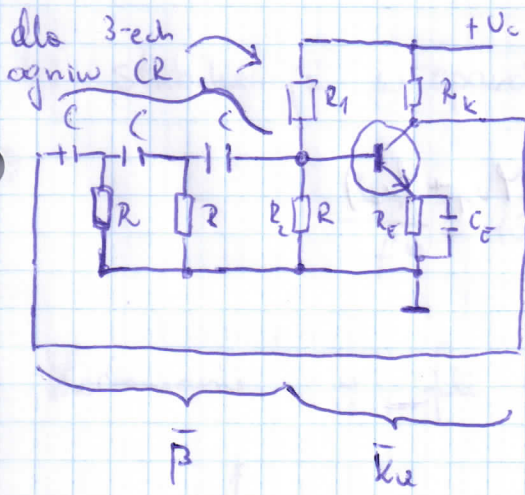 dla 3-ech
ogniw CR
+Uc
C C C
R1
RK
R R R2 R
RE CE
β̄
K̄u